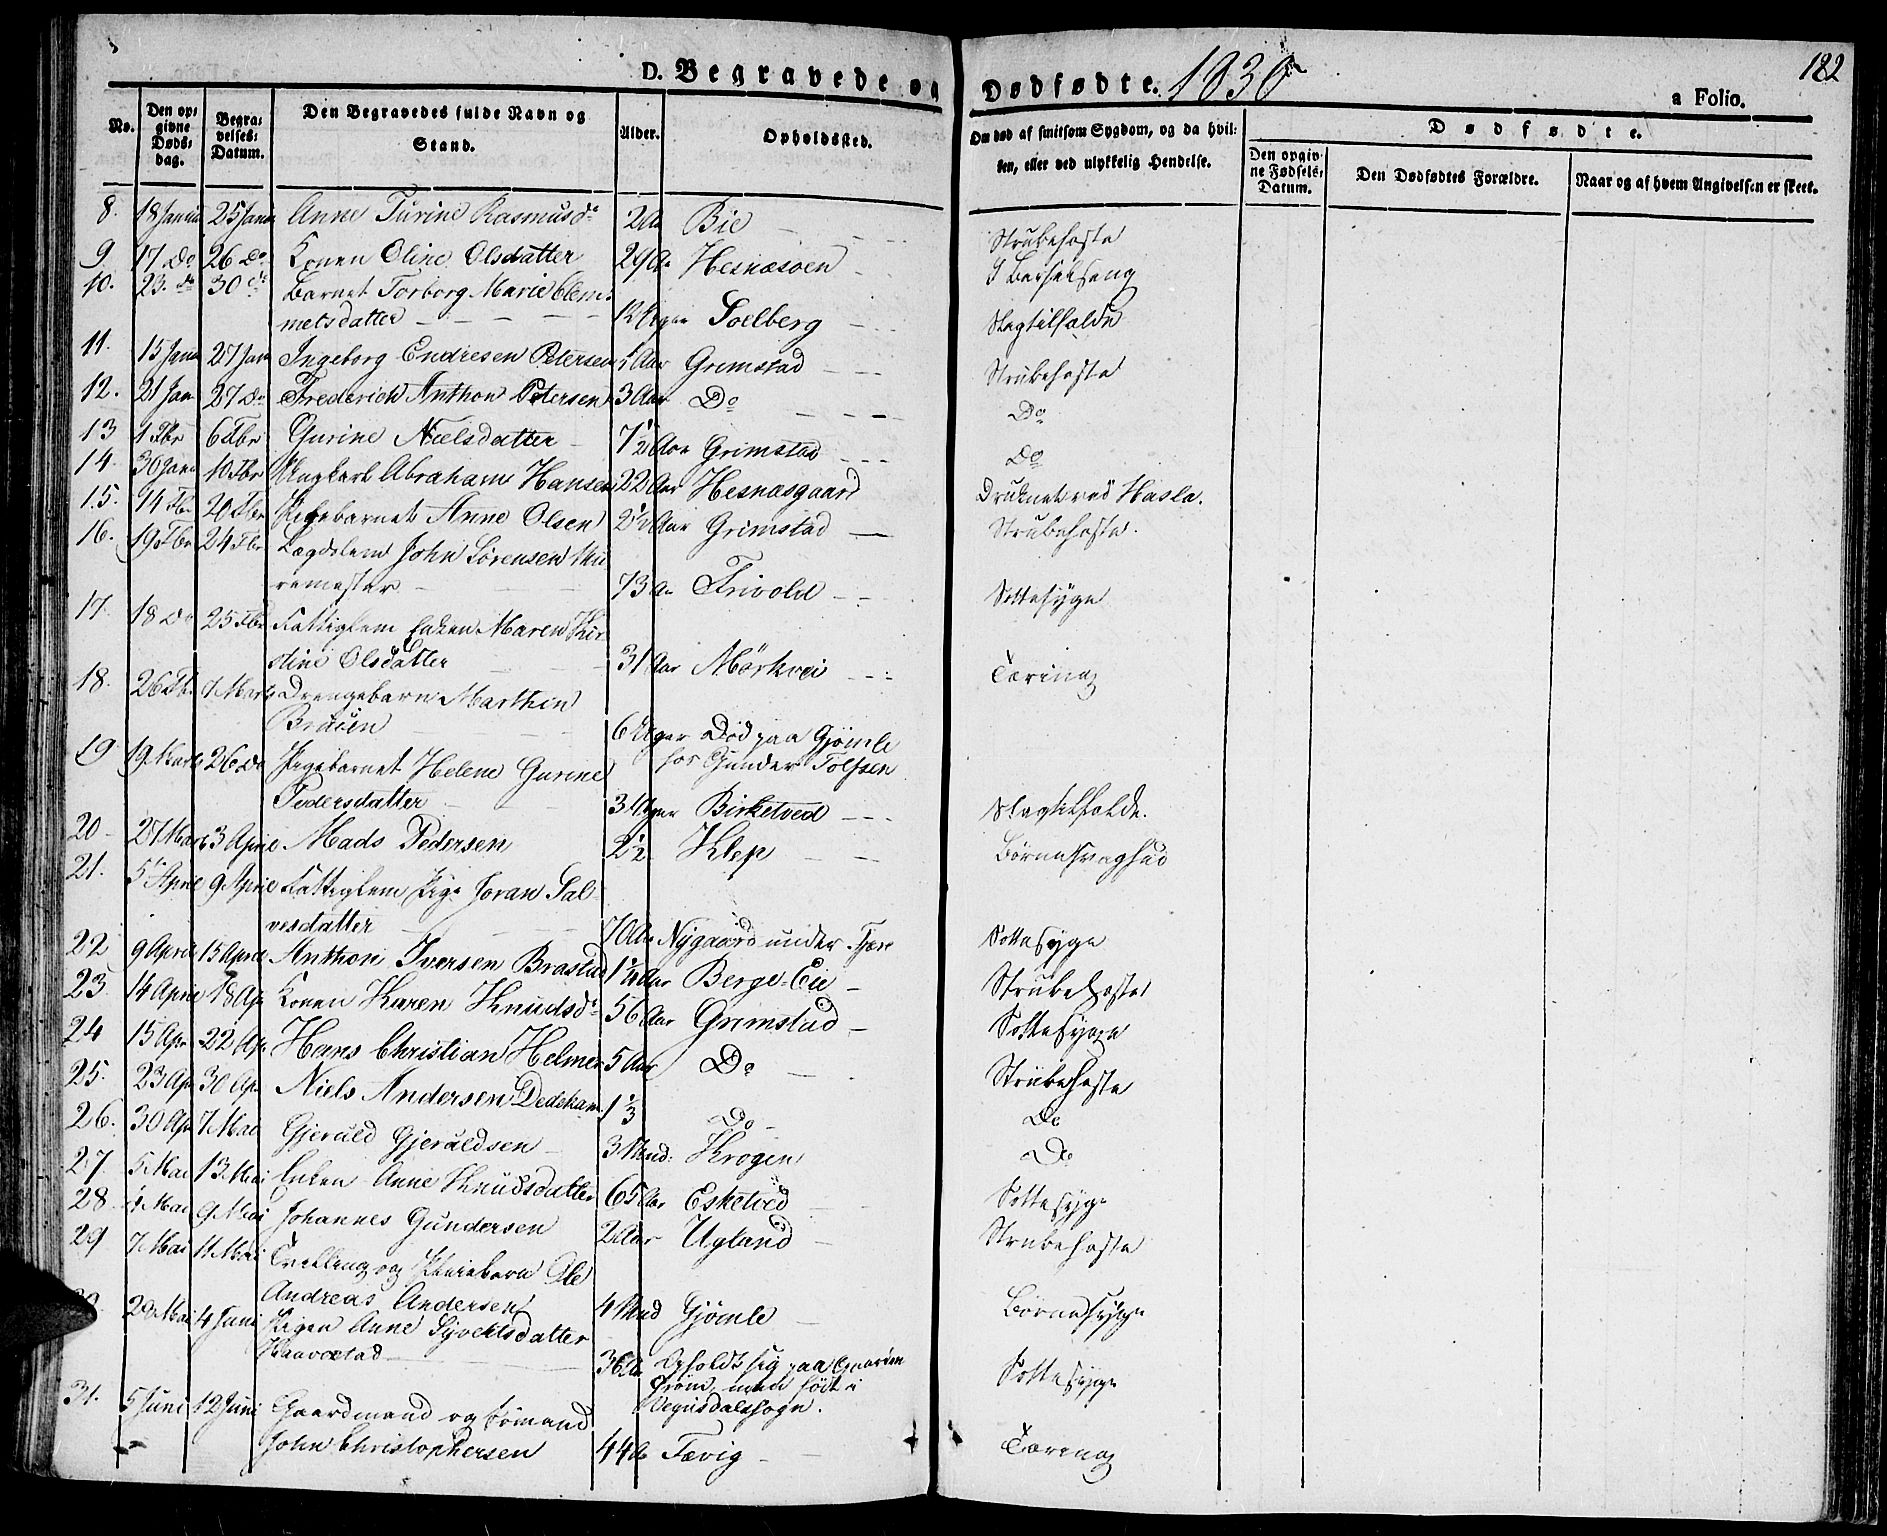 182
D. Begravede og Dødfødte. 1836
a Folio.
No. Den opgivne Dødsdag. Begravelses-Datum. Den Begravedes fulde Navn og Stand. Alder. Opholdssted. Om død af smitsom Sygdom, og da hvilken, eller ved ulykkelig Hendelse.
Dødfødte.
Den opgivne Fødsels-Datum. Den Dødfødtes Forældre. Naar og af hvem Angivelsen er skeet.
8. 18 25 Anne Turine Rasmusd. 2 Bie Strubehoste
9. 17 Do 26 Do Konen Oline Olsdatter 29 Hesnæsøen I Barselseng
10. 23. do 30 do Barnet Torborg Marie Clem-
metsdatter 12 Uger Solberg Slagtilfælde
11. 15 Jan 27 Jan Ingeborg Endresen Petersen 5 Aar Grimstad Strubehoste
12. 21 Jan 27 Do Frederich Anthon Petersen 3 Aar Do Do
13 1 Fbr 6 Fbr Gurine Nielsdatter 7½ Aar Grimstad Do
14. 30 Jan 10 Fbr Ungkarl Abraham Hansen 22 Aar Hesnæsgaard Druknet ved Hasla.
15. 14 Fbr 20 Fbr Pigebarnet Anne Olsen 2½ Aar Grimstad Strubehoste.
16. 19 Fbr 24 Fbr Lægdslem John Sörensen Mu-
remester 73 A. Frivold Sottesyge
17. 18 Do 25 Fbr Fattiglem Enken Maren Kir-
stine Olsdatter 31 Aar Mörkvei Tæring
18. 26 Fb. 7 Marts Drengebarn Marthin
Bruun 6 Uger Död paa Gjömle
hos Gunder Tolfsen
19 19 Marts 26 Do Pigebarnet Helene Gurine
Pedersdatter 3 Uger Birketved Slagtilfælde.
20 27 Marts 3 April Mads Pedersen 2½ Klep Børnesvaghed
21. 5 April 9 April Fattiglem Pige Joran Sal-
vesdatter 70 Aar Nygaard under Fjære Sottesyge
22 9 April 15 April Anthon Iversen Brastad 1¼ Aar Berge-Eie Strubehoste
23. 14 April 18 Ap. Konen Karen Knudsd. 56 Aar Grimstad Sottesyge
24 15 Apr 22 Ap. Hans Christian Helmer 5 Aar Do Strubehoste
25. 23 Ap 30 Ap. Niels Andersen Dedekam 1⅓ Do Do
26. 30 Ap 7 Mai Gjeruld Gjeruldsen 3 Mnd. Krogen Do
27. 5 Mai 13 Mai Enken Anne Knudsdatter 65 Aar Esketved Sottesyge
28. 4 Mai 9 Mai Johannes Gundersen 2 Aar Ugland Strubehoste
29 7 Mai 11 Mai Tvilling og Pleiebarn Ole
Andreas Andersen 4 Mnd Gjömle Børnesyge
29 Mai 4 Juni Pigen Anne Sjvertsdatter
Haavorstad 36 Aar Opholdt sig paa
men født i
Vegusdalssogn. Sottesyge
31. 5 Juni 12 Juni Gaardmand og Sömand
John Christophersen 44 A Fævig Tæring